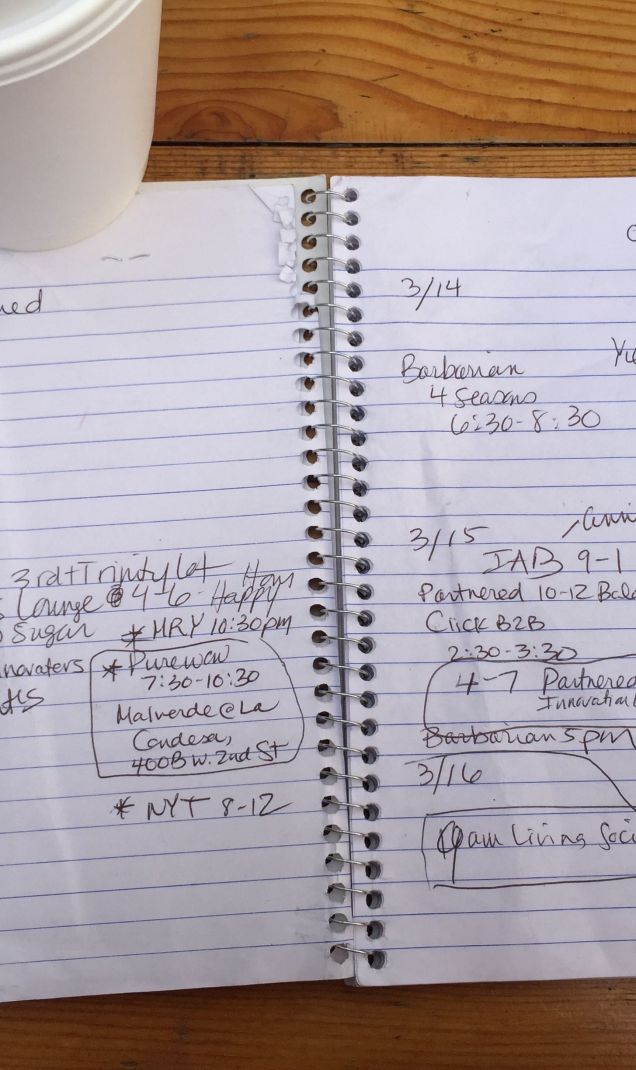 3rd + Trinity Lot
Lounge @ 4-6 - Happy Hour
Sugar * MRY 10:30pm
* Purewow
7:30-10:30
Malverde @ La
Condesa,
400B W. 2nd St
* NYT 8-12
3/14
Barbarian
4 Seasons
6:30-8:30
3/15
IAB 9-1
Partnered 10-12
Click B2B
2:30-3:30
4-7 Partnered
Barbarian 5pm
3/16
9am Living